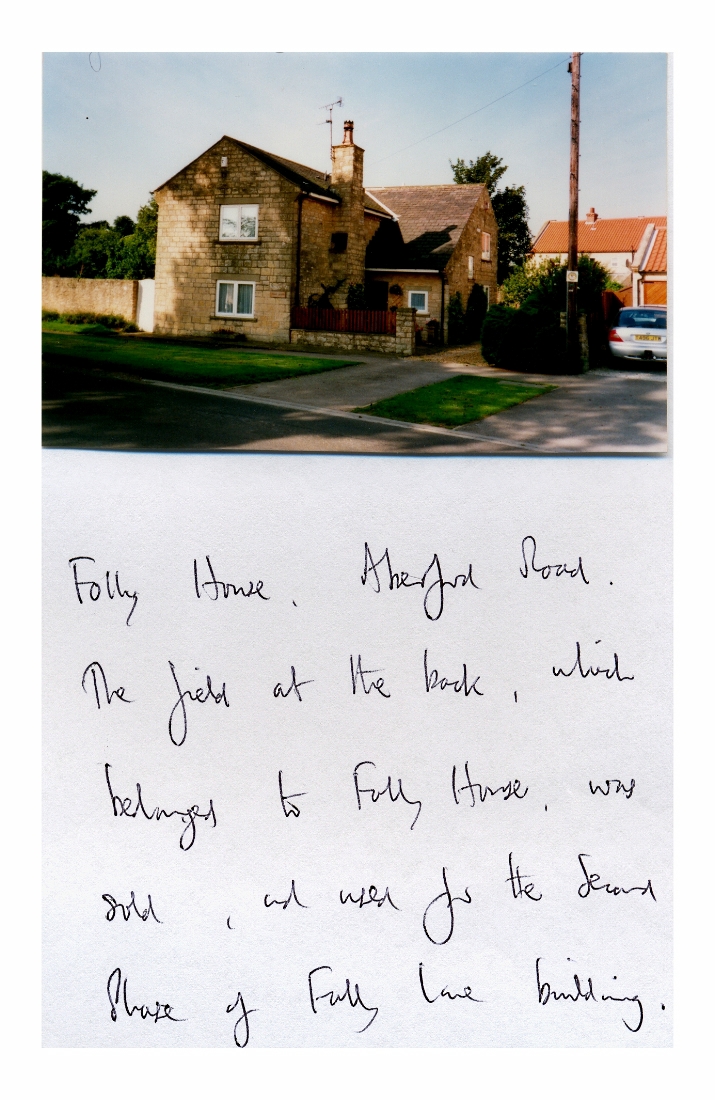 Folly House. Aberford Road.
The field at the back, which
belonges to Folly House, was
sold, and used for the Second
Phase of Folly Lane building.